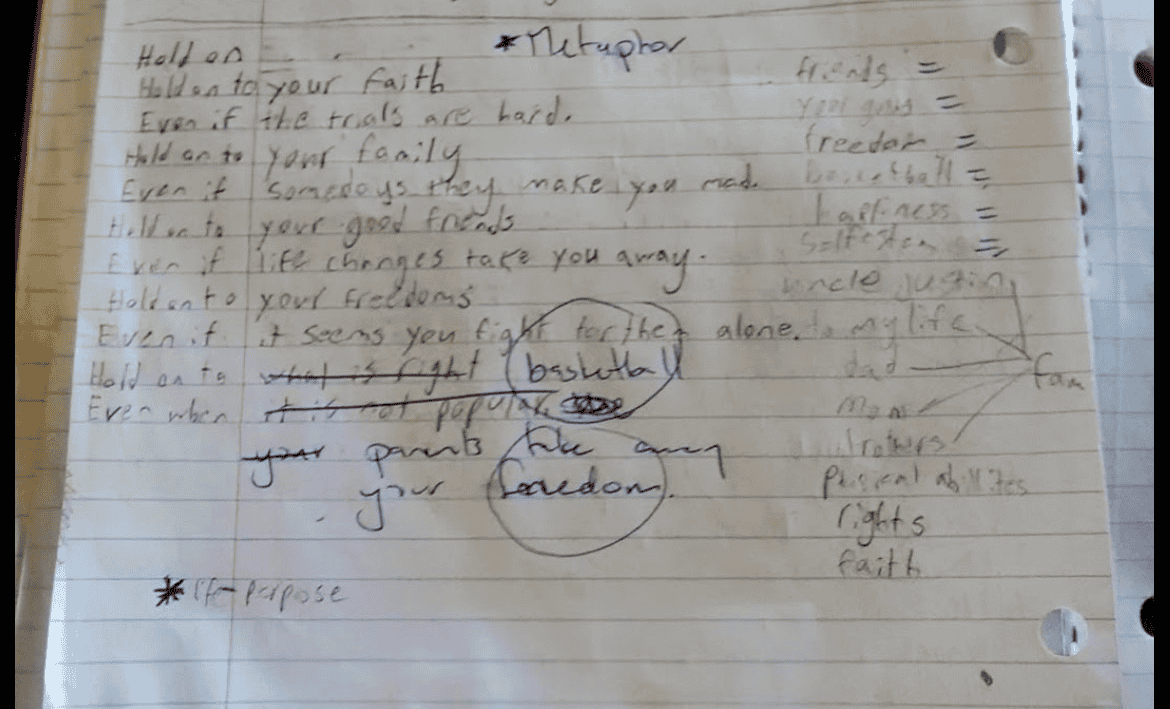 * Metaphor
Hold on
Hold on to your faith
Even if the trials are hard.
Hold on to your family
Even if somedays they make you mad.
Hold on to your good friends
Even if life changes take you away.
Hold on to your freedoms
Even if it seems you fight for them alone.
Hold on to what is right basketball
Even when it is not popular
your parents take away
your freedom.
* life-purpose
friends =
freedom =
basketball =
happiness =
=
uncle Justin
to my life
dad
mom
brothers
fam
physical abilites
rights
faith